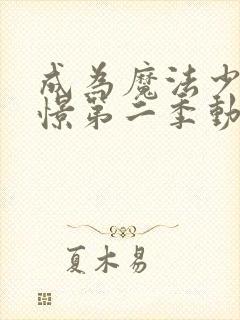 成為魔法少
憬第二季動
夏木易